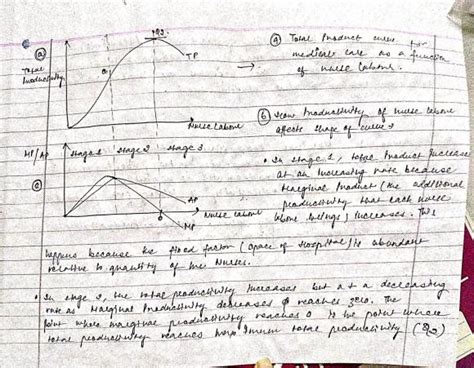 (a)
Total
Productivity
TP
Nurse Labour
(a) Total Product curve for
medical care as a function
of nurse labour.
(b) How Productivity of nurse labour
affects shape of curve?
MP/AP
Stage 1 Stage 2 Stage 3
(c)
AP
Nurse labour
MP
• In stage 1, total Product increases
at an increasing rate because
Marginal Product (the additional
productivity that each nurse
labour brings) increases. This
happens because the fixed factor (space of Hospital) is abundant
relative to quantity of the Nurses.
• In stage 2, the total productivity increases but at a decreasing
rate as Marginal Productivity decreases & reaches zero. The
point where marginal productivity reaches 0 is the point where
total productivity reaches maximum total productivity